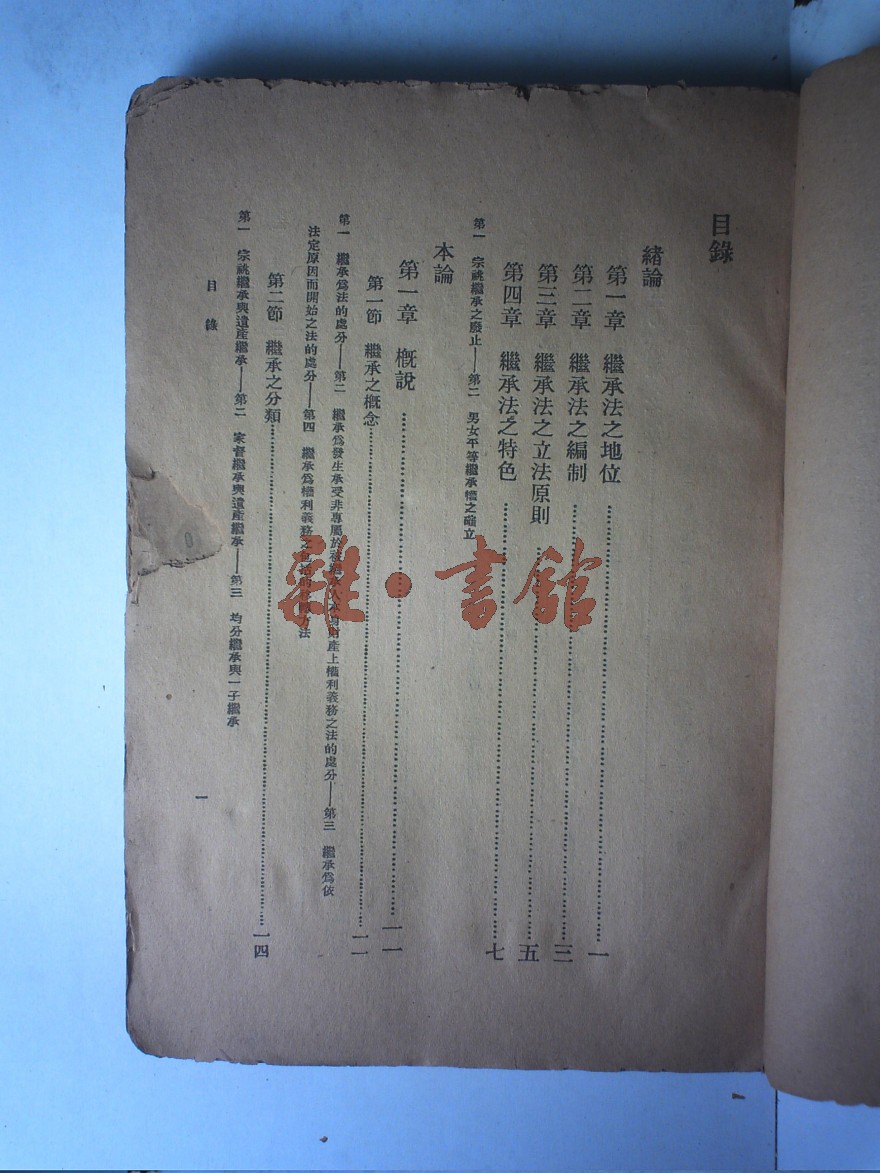 目錄
緒論
第一章 繼承法之地位……一
第二章 繼承法之編制……三
第三章 繼承法之立法原則……五
第四章 繼承法之特色……七
第一 宗祧繼承之廢止——第二 男女平等繼承權之確立
本論
第一章 概說……一一
第一節 繼承之概念……一一
第一 繼承爲法的處分——第二 繼承爲發生承受非專屬於被繼承人本身財產上權利義務之法的處分——第三 繼承爲依
法定原因而開始之法的處分——第四 繼承爲權利義務之包括的移轉方法
第二節 繼承之分類……一四
第一 宗祧繼承與遺產繼承——第二 家督繼承與遺產繼承——第三 均分繼承與一子繼承
目錄
一
雜·書館